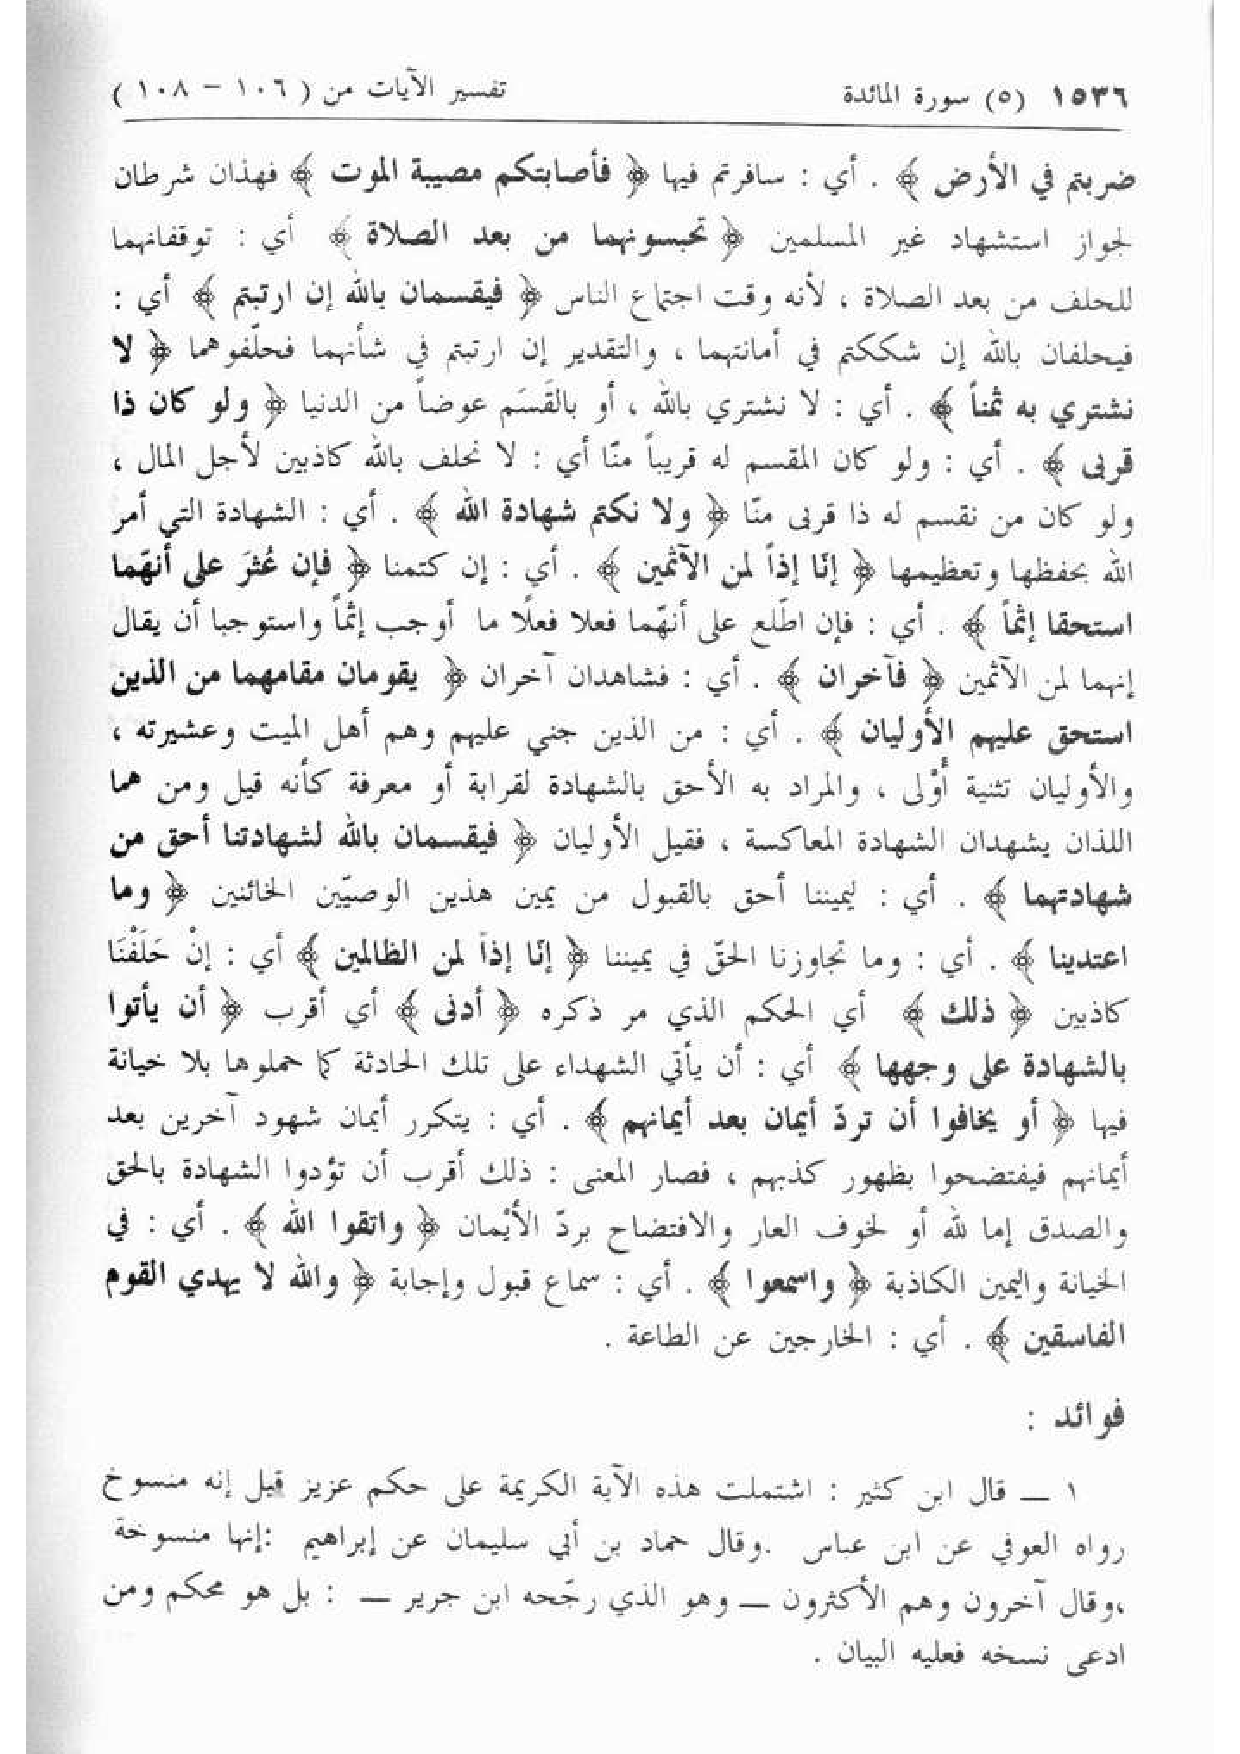 ١٥٣٦ (٥) سورة المائدة تفسير الآيات من ( ١٠٦ – ١٠٨ )
ضربتم في الأرض ﴾ . أي : سافرتم فيها ﴿ فأصابتكم مصيبة الموت ﴾ فهذان شرطان
لجواز استشهاد غير المسلمين ﴿ تحبسونهما من بعد الصلاة ﴾ أي : توقفانهما
للحلف من بعد الصلاة ، لأنه وقت اجتماع الناس ﴿ فيقسمان بالله إن ارتبتم ﴾ أي :
فيحلفان بالله إن شككتم في أمانتهما ، والتقدير إن ارتبتم في شأنهما فحلّفوهما ﴿ لا
نشتري به ثمناً ﴾ . أي : لا نشتري بالله ، أو بالقَسَم عوضاً من الدنيا ﴿ ولو كان ذا
قربى ﴾ . أي : ولو كان المقسم له قريباً منّا أي : لا نحلف بالله كاذبين لأجل المال ،
ولو كان من نقسم له ذا قربى منّا ﴿ ولا نكتم شهادة الله ﴾ . أي : الشهادة التي أمر
الله بحفظها وتعظيمها ﴿ إنّا إذاً لمن الآثمين ﴾ . أي : إن كتمنا ﴿ فإن عُثرَ على أنهّما
استحقا إثماً ﴾ . أي : فإن اطّلع على أنهّما فعلا فعلًا ما أوجب إثماً واستوجبا أن يقال
إنهما لمن الآثمين ﴿ فآخران ﴾ . أي : فشاهدان آخران ﴿ يقومان مقامهما من الذين
استحق عليهم الأوليان ﴾ . أي : من الذين جني عليهم وهم أهل الميت وعشيرته ،
والأوليان تثنية أَوْلى ، والمراد به الأحق بالشهادة لقرابة أو معرفة كأنه قيل ومن هما
اللذان يشهدان الشهادة المعاكسة ، فقيل الأوليان ﴿ فيقسمان بالله لشهادتنا أحق من
شهادتهما ﴾ . أي : ليميننا أحق بالقبول من يمين هذين الوصيّين الخائنين ﴿ وما
اعتدينا ﴾ . أي : وما تجاوزنا الحقّ في يميننا ﴿ إنّا إذاً لمن الظالمين ﴾ أي : إنْ حَلَفْنَا
كاذبين ﴿ ذلك ﴾ أي الحكم الذي مر ذكره ﴿ أدنى ﴾ أي أقرب ﴿ أن يأتوا
بالشهادة على وجهها ﴾ أي : أن يأتي الشهداء على تلك الحادثة كما حملوها بلا خيانة
فيها ﴿ أو يخافوا أن تردّ أيمان بعد أيمانهم ﴾ . أي : يتكرر أيمان شهود آخرين بعد
أيمانهم فيفتضحوا بظهور كذبهم ، فصار المعنى : ذلك أقرب أن تؤدوا الشهادة بالحق
والصدق إما لله أو لخوف العار والافتضاح بردّ الأيْمان ﴿ واتقوا الله ﴾ . أي : في
الخيانة واليمين الكاذبة ﴿ واسمعوا ﴾ . أي : سماع قبول وإجابة ﴿ والله لا يهدي القوم
الفاسقين ﴾ . أي : الخارجين عن الطاعة .
فوائد :
١ ـــ قال ابن كثير : اشتملت هذه الآية الكريمة على حكم عزيز قيل إنه منسوخ
رواه العوفي عن ابن عباس .وقال حماد بن أبي سليمان عن إبراهيم :إنها منسوخة
،وقال آخرون وهم الأكثرون ـــ وهو الذي رجّحه ابن جرير ـــ : بل هو محكم ومن
ادعى نسخه فعليه البيان .